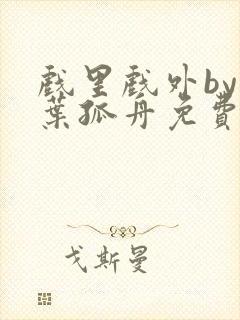 戲里戲外by
葉孤舟免費
戈斯曼